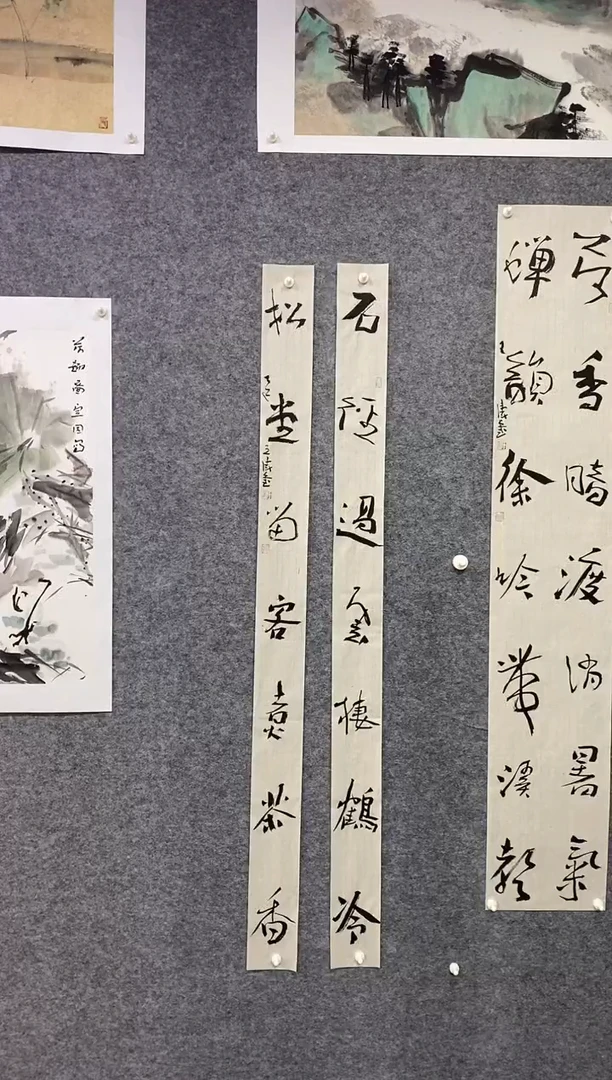 荷香暗渡消暑氣
蟬韻徐吟帶溪聲
石徑過雲棲鶴冷
松堂留客煮茶香